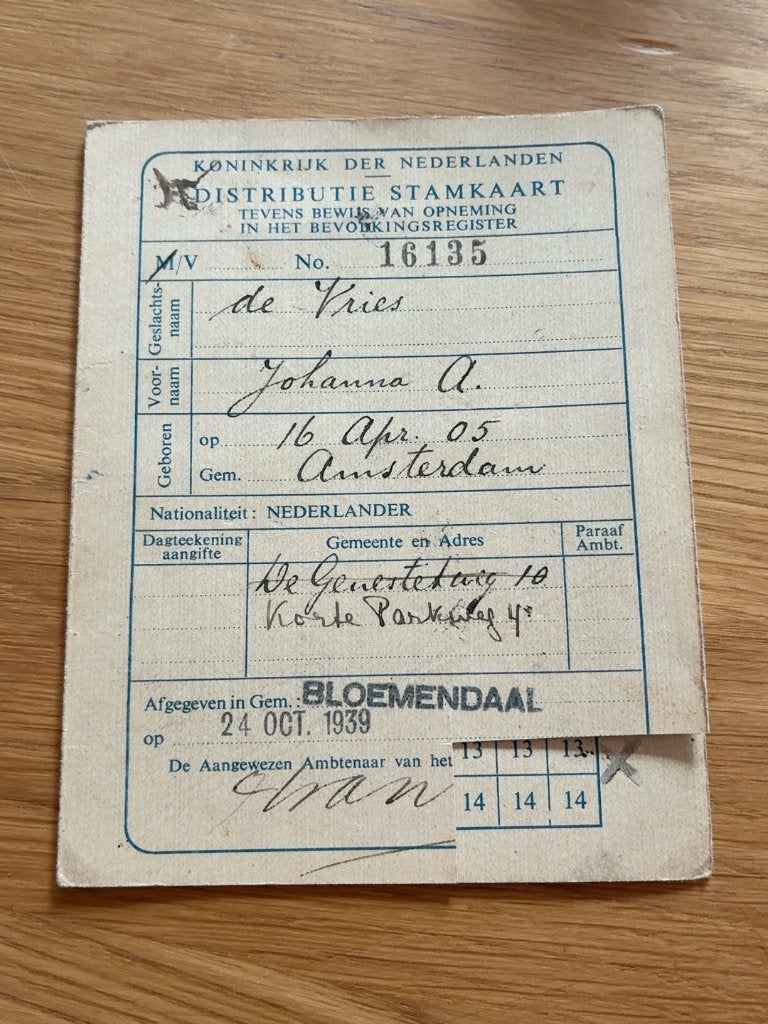 KONINKRIJK DER NEDERLANDEN
DISTRIBUTIE STAMKAART
TEVENS BEWIJS VAN OPNEMING
IN HET BEVOLKINGSREGISTER
M/V No. 16135
Geslachts-
naam de Vries
Voor-
naam Johanna A.
Geboren op 16 Apr. 05
Gem. Amsterdam
Nationaliteit: NEDERLANDER
Dagteekening
aangifte
Gemeente en Adres
Paraaf
Ambt.
De Genestetweg 10
Korte Parkweg 4
Afgegeven in Gem.: BLOEMENDAAL
op 24 OCT. 1939
De Aangewezen Ambtenaar van het
13 13 13
14 14 14